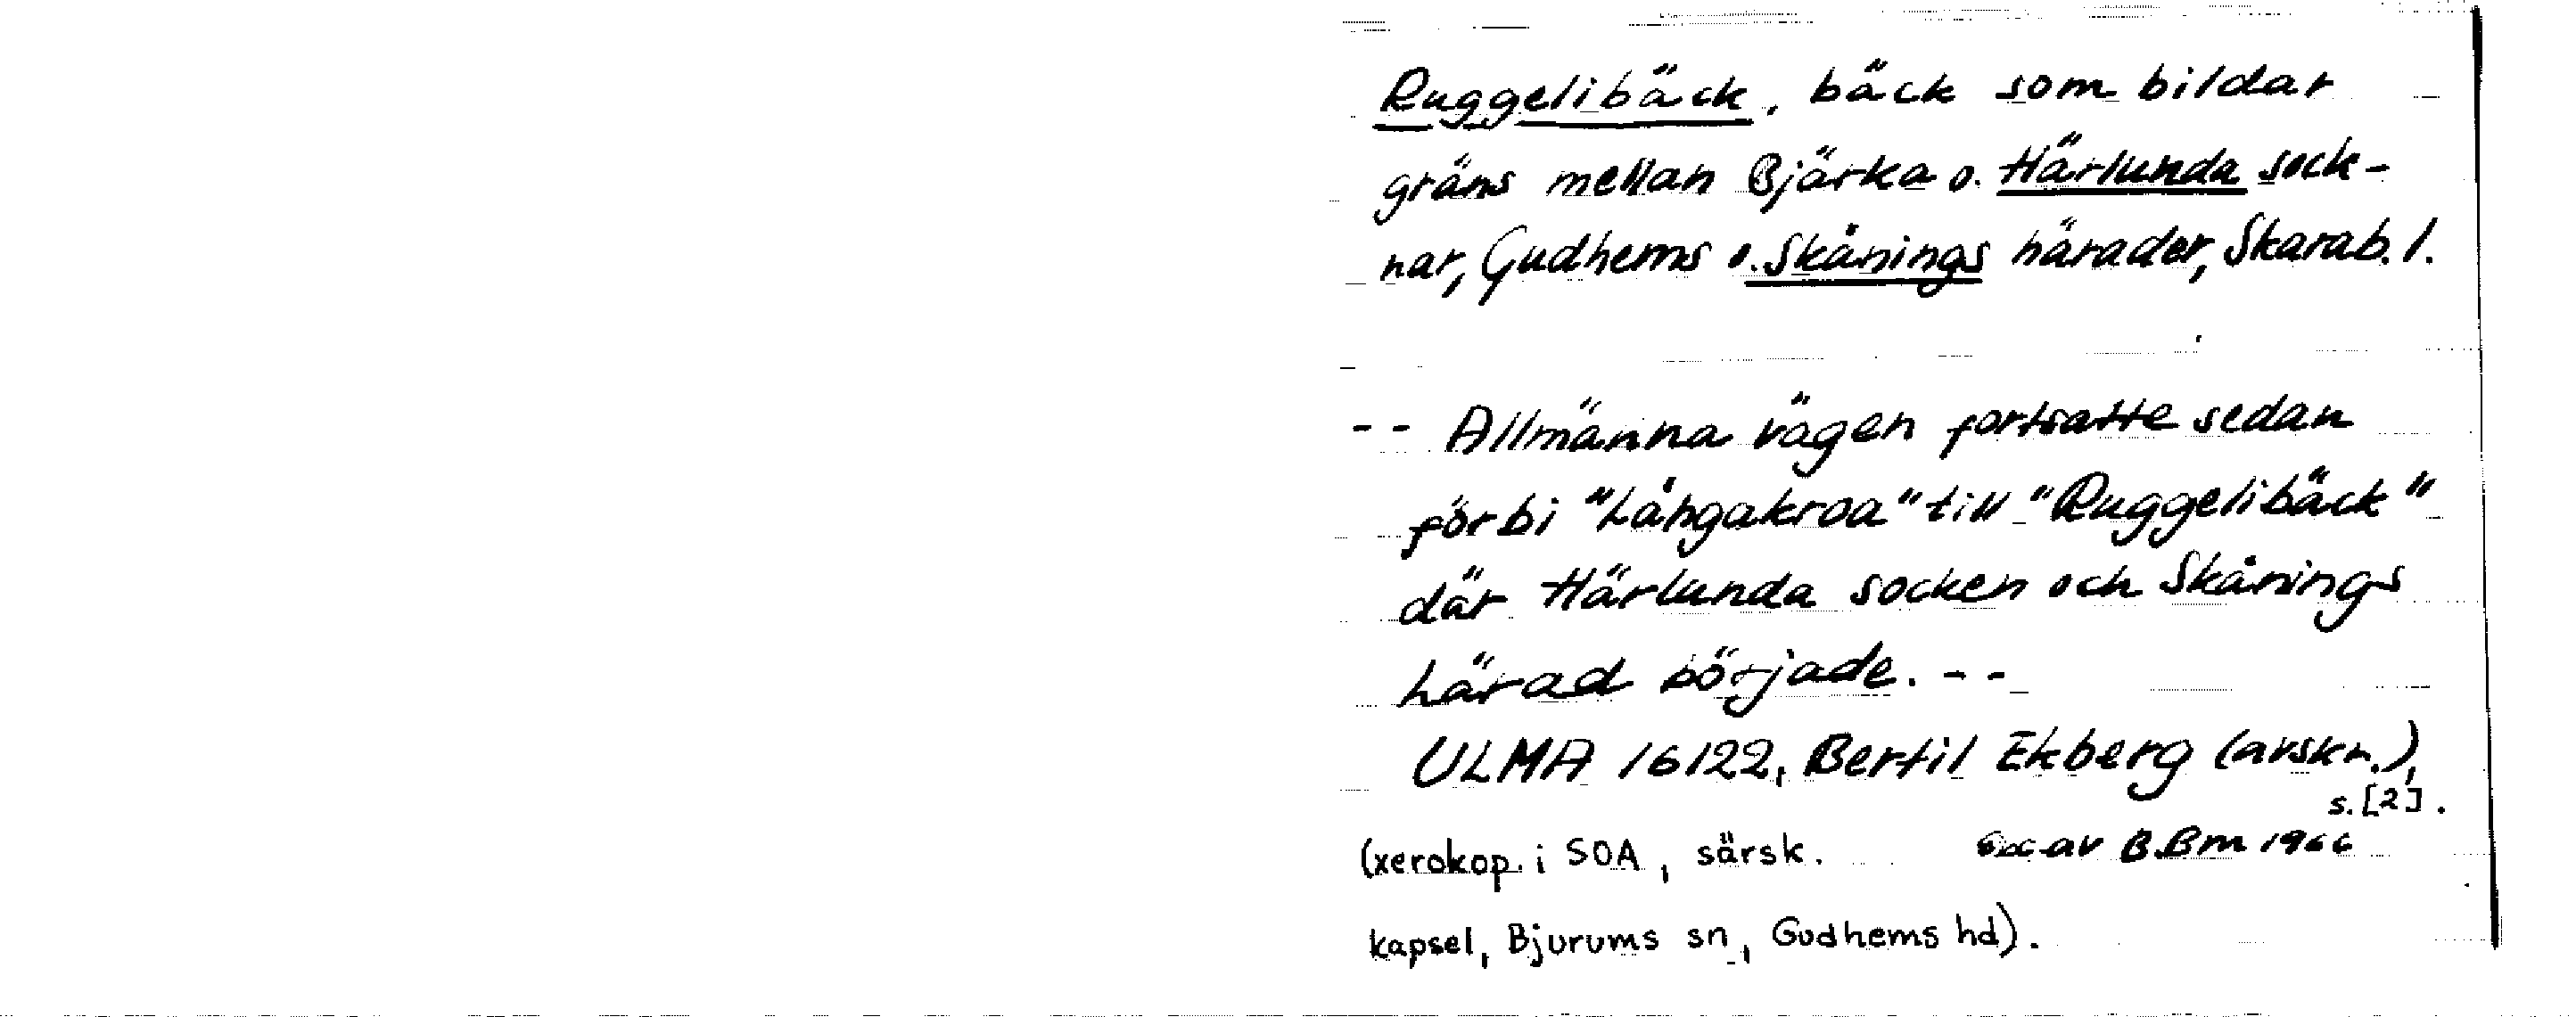 Ruggelibäck, bäck som bildar
gräns mellan Bjärka o. Härlunda sock-
nar, Gudhems o. Skånings härader, Skarab. l.
-- Allmänna vägen fortsatte sedan
förbi "Långakroa" till "Ruggelibäck"
där Härlunda socken och Skånings
härad började. --
ULMA 16122, Bertil Ekberg (avskr.),
s. [2].
(xerokop. i SOA, särsk.
av B.Bm 1966
kapsel, Bjurums sn, Gudhems hd).